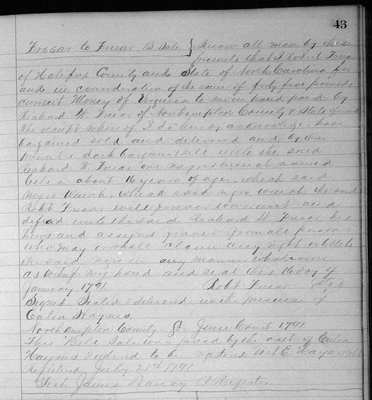 43
Freear to Freear B. Sale } Know all men by these
presents that I Robert Freear
of Halifax County and State of North Carolina for
and in consideration of the sum of forty five pounds
current Money of Virginia to me in hand paid by
Richard H. Freear of Northampton County & State
the receipt whereof I do hereby acknowledge have
bargained sold and delivered and by these
presents doth bargain & sell unto the said
Richard H. Freear one negro wench named
about 16 years of age which said
Negro Wench the said
Robt Freear will forever warrant and
defend unto the said Richard H. Freear his
heirs and assigns forever from all persons
who may or shall claim any right or title to
the said negro in any manner whatsoever
As Witness my hand and seal this 18 day of
January 1791 Robt Freear Seal
Signed Sealed & delivered in the presence of
Eaton Haynes
Northampton County Sc. June Court 1791
This Bill Sale was proved by the oath of Eaton
Haynes & ordered to be registered
Registered July 21st 1791
Test James Register